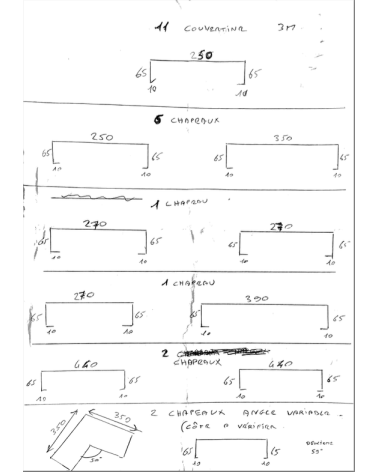 11 COUVERTINE 3M
250
65 65
10 10
6 CHAPEAUX
250 350
65 65 65 65
10 10 10 10
1 CHAPEAU
270 270
65 65 65 65
10 10 10 10
1 CHAPEAU
270 390
65 65 65 65
10 10 10 10
2
CHAPEAUX
440 440
65 65 65 65
10 10 10 10
2 CHAPEAUX ANGLE
(CÔTE A VÉRIFIER
350 350
65 65
10 10